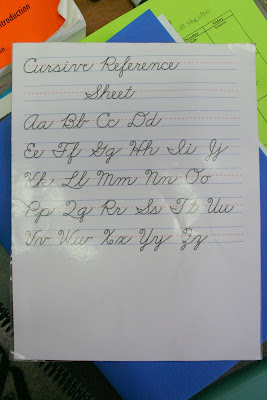 Cursive Reference
Sheet
Aa Bb Cc Dd
Ee Ff Gg Hh Ii Jj
Kk Ll Mm Nn Oo
Pp Qq Rr Ss Tt Uu
Vv Ww Xx Yy Zz